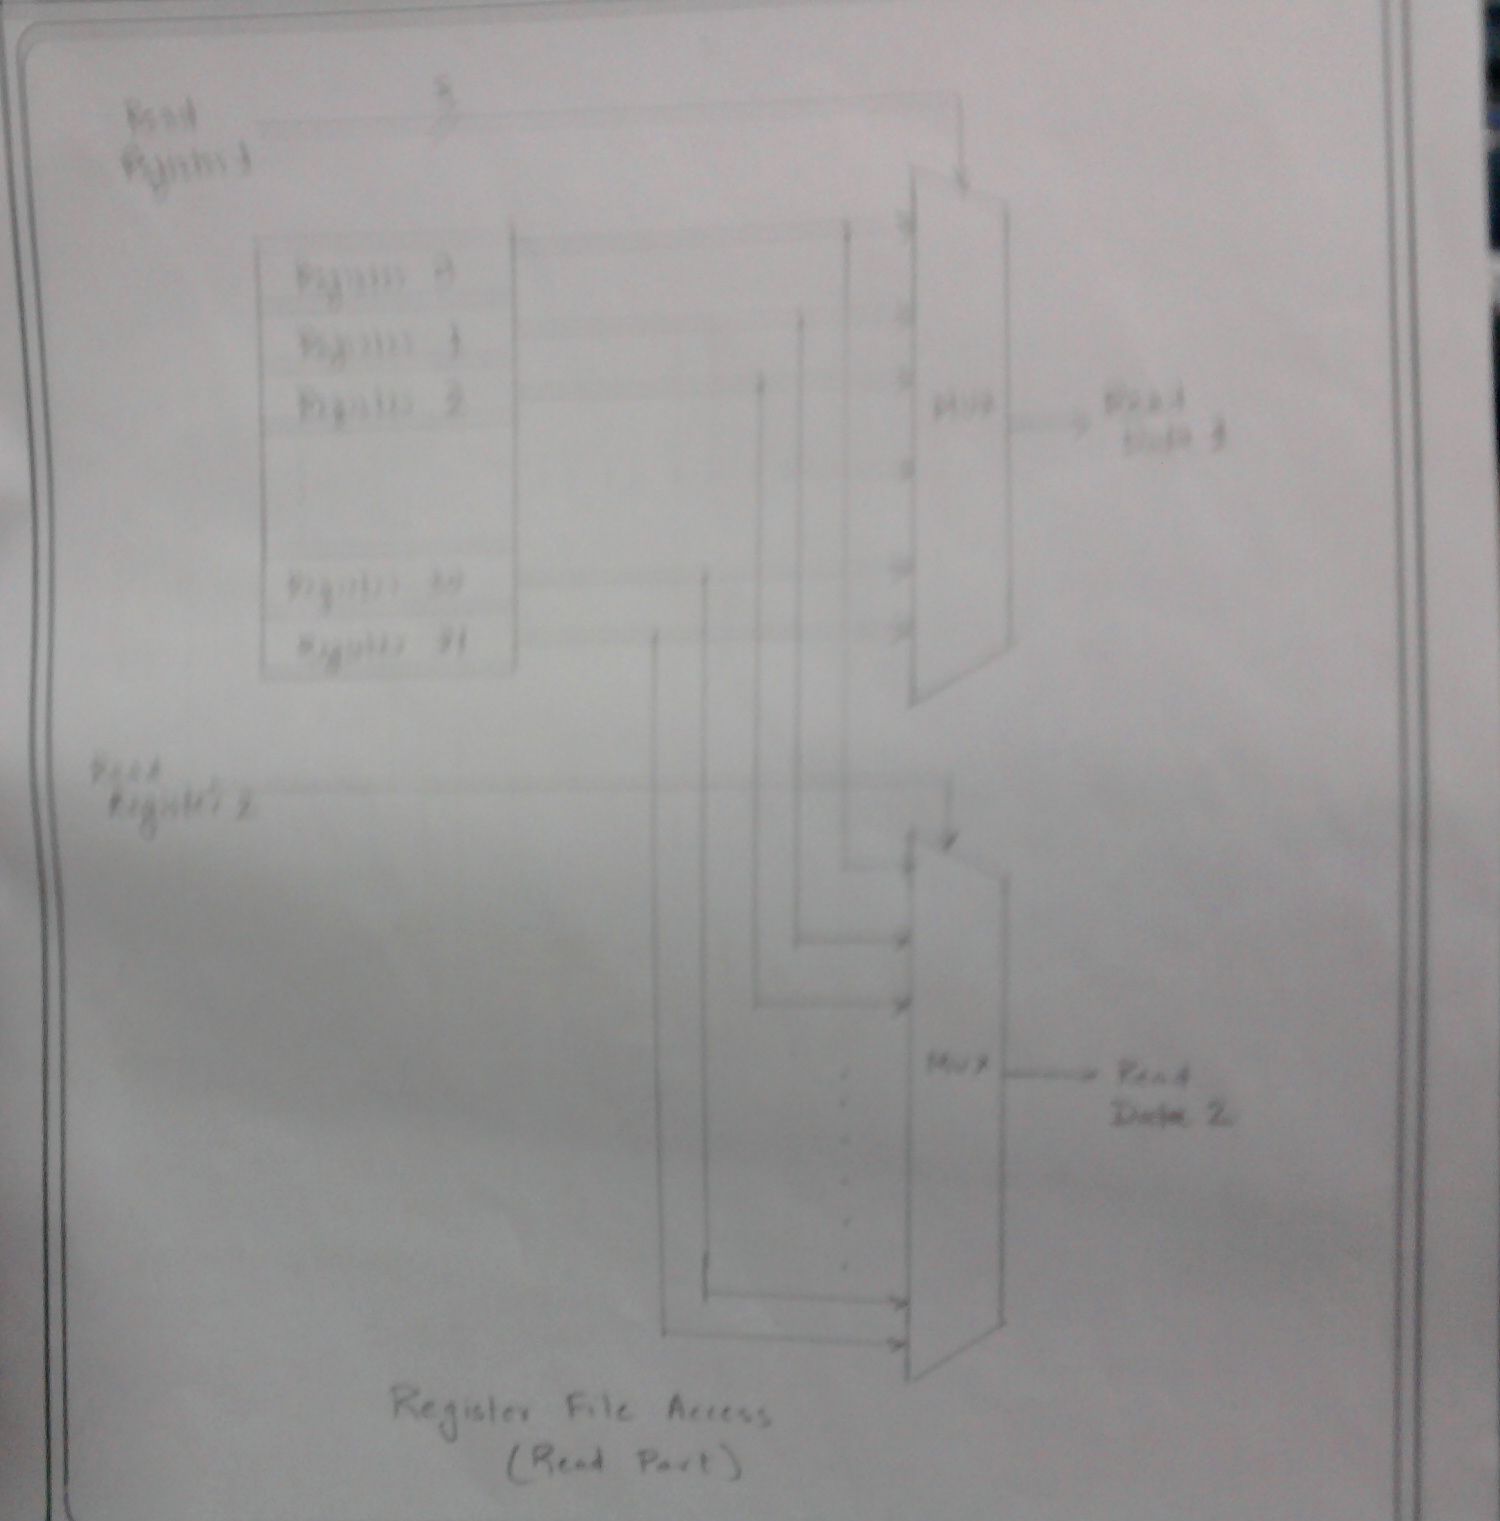 Read
Register 1
5
Register 0
Register 1
Register 2
Register 30
Register 31
MUX
Read
Data 1
Read
Register 2
MUX
Read
Data 2
Register File Access
(Read Part)